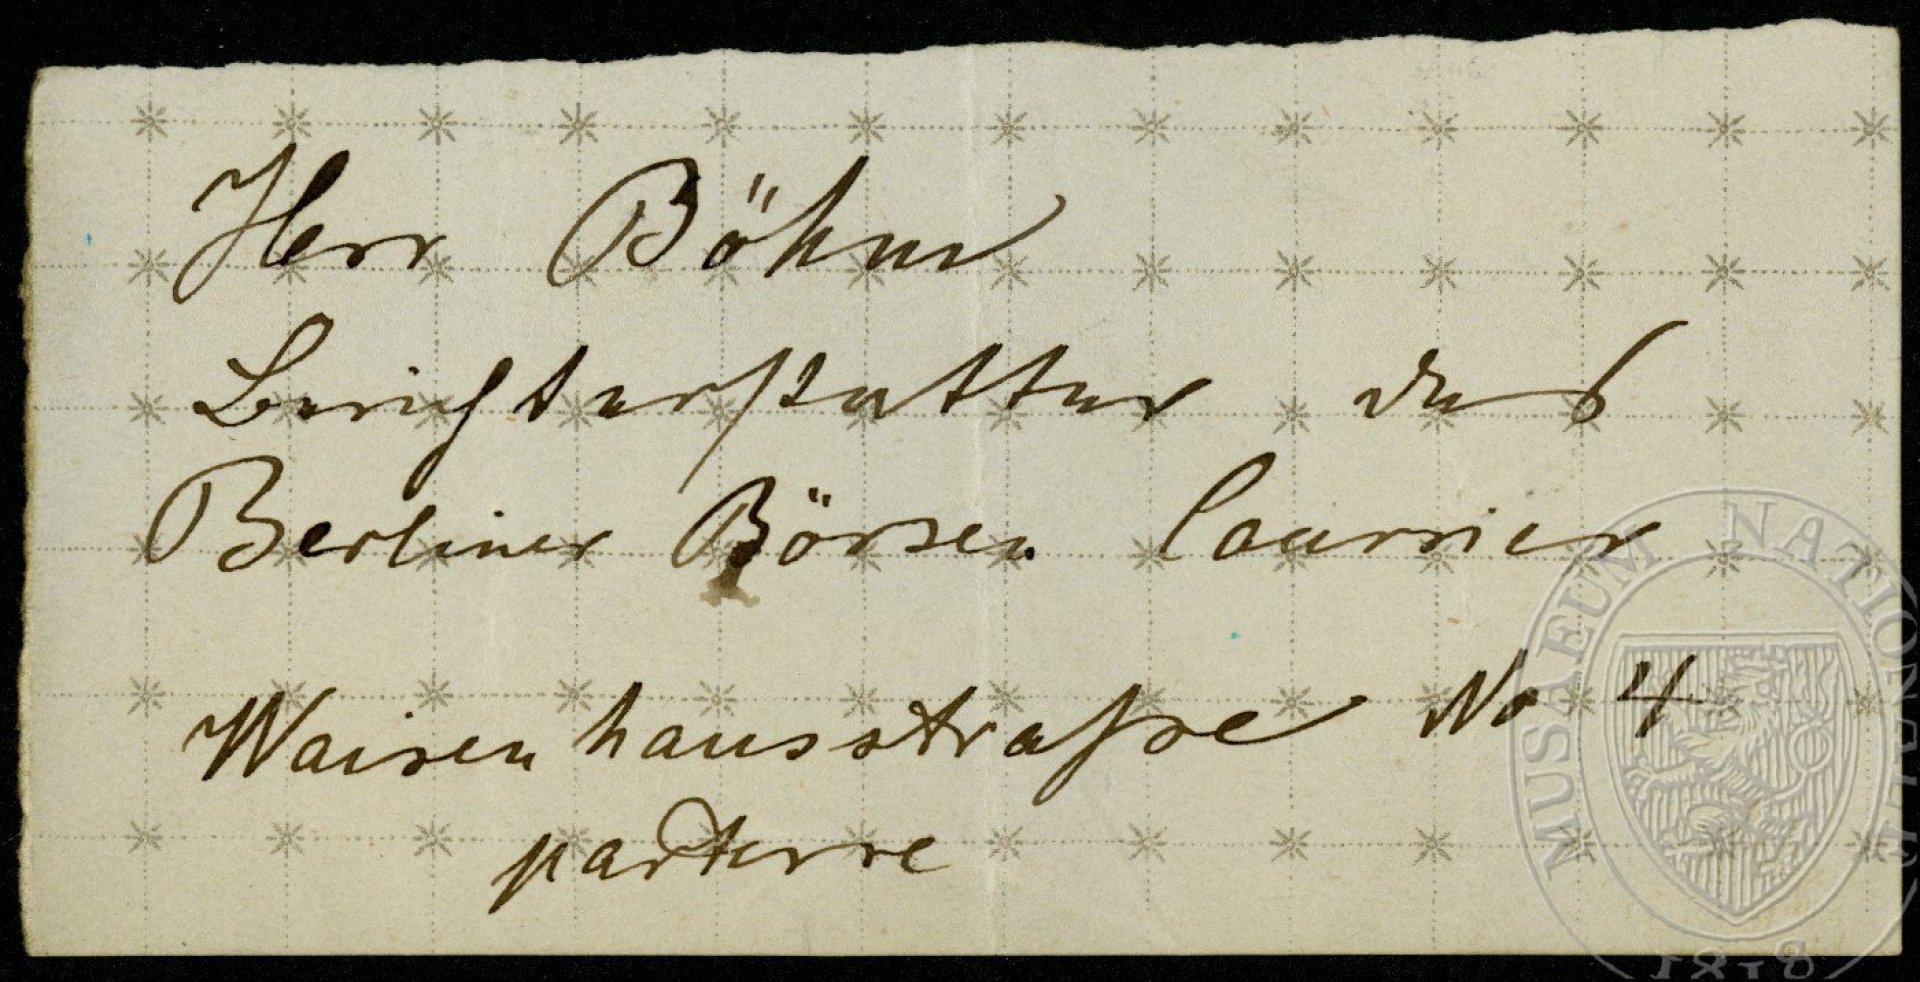 Herr Böhm
Berichterstatter des
Berliner Börsen Courrier
Waisenhausstraße No 4
parterre
MUSAEUM NATIONALE
1818